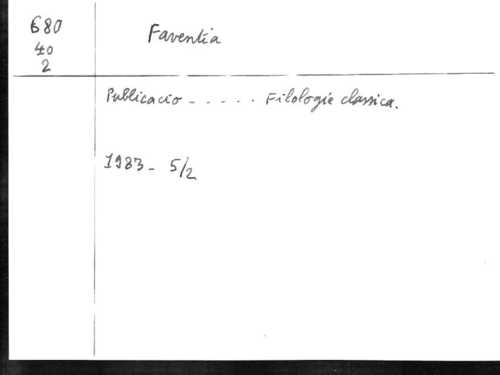 680
40
2
Faventia
Publicacio - . - . . . Filologie classica.
1983 - 5/2